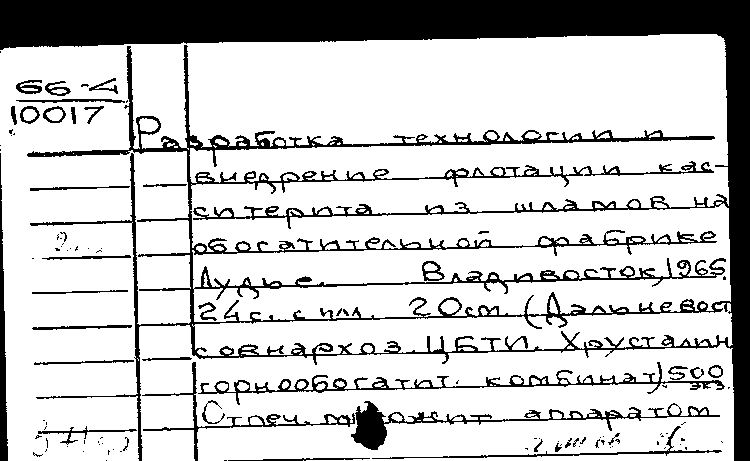 66-4
10017
Разработка технологии и
внедрение флотации кас-
ситерита из шламов на
обогатительной фабрике
Лудье. Владивосток, 1965.
24с. с илл. 20см. (Дальневост
совнархоз. ЦБТИ. Хрусталин
горнообогатит. комбинат) 500
экз.
Отпеч. аппаратом